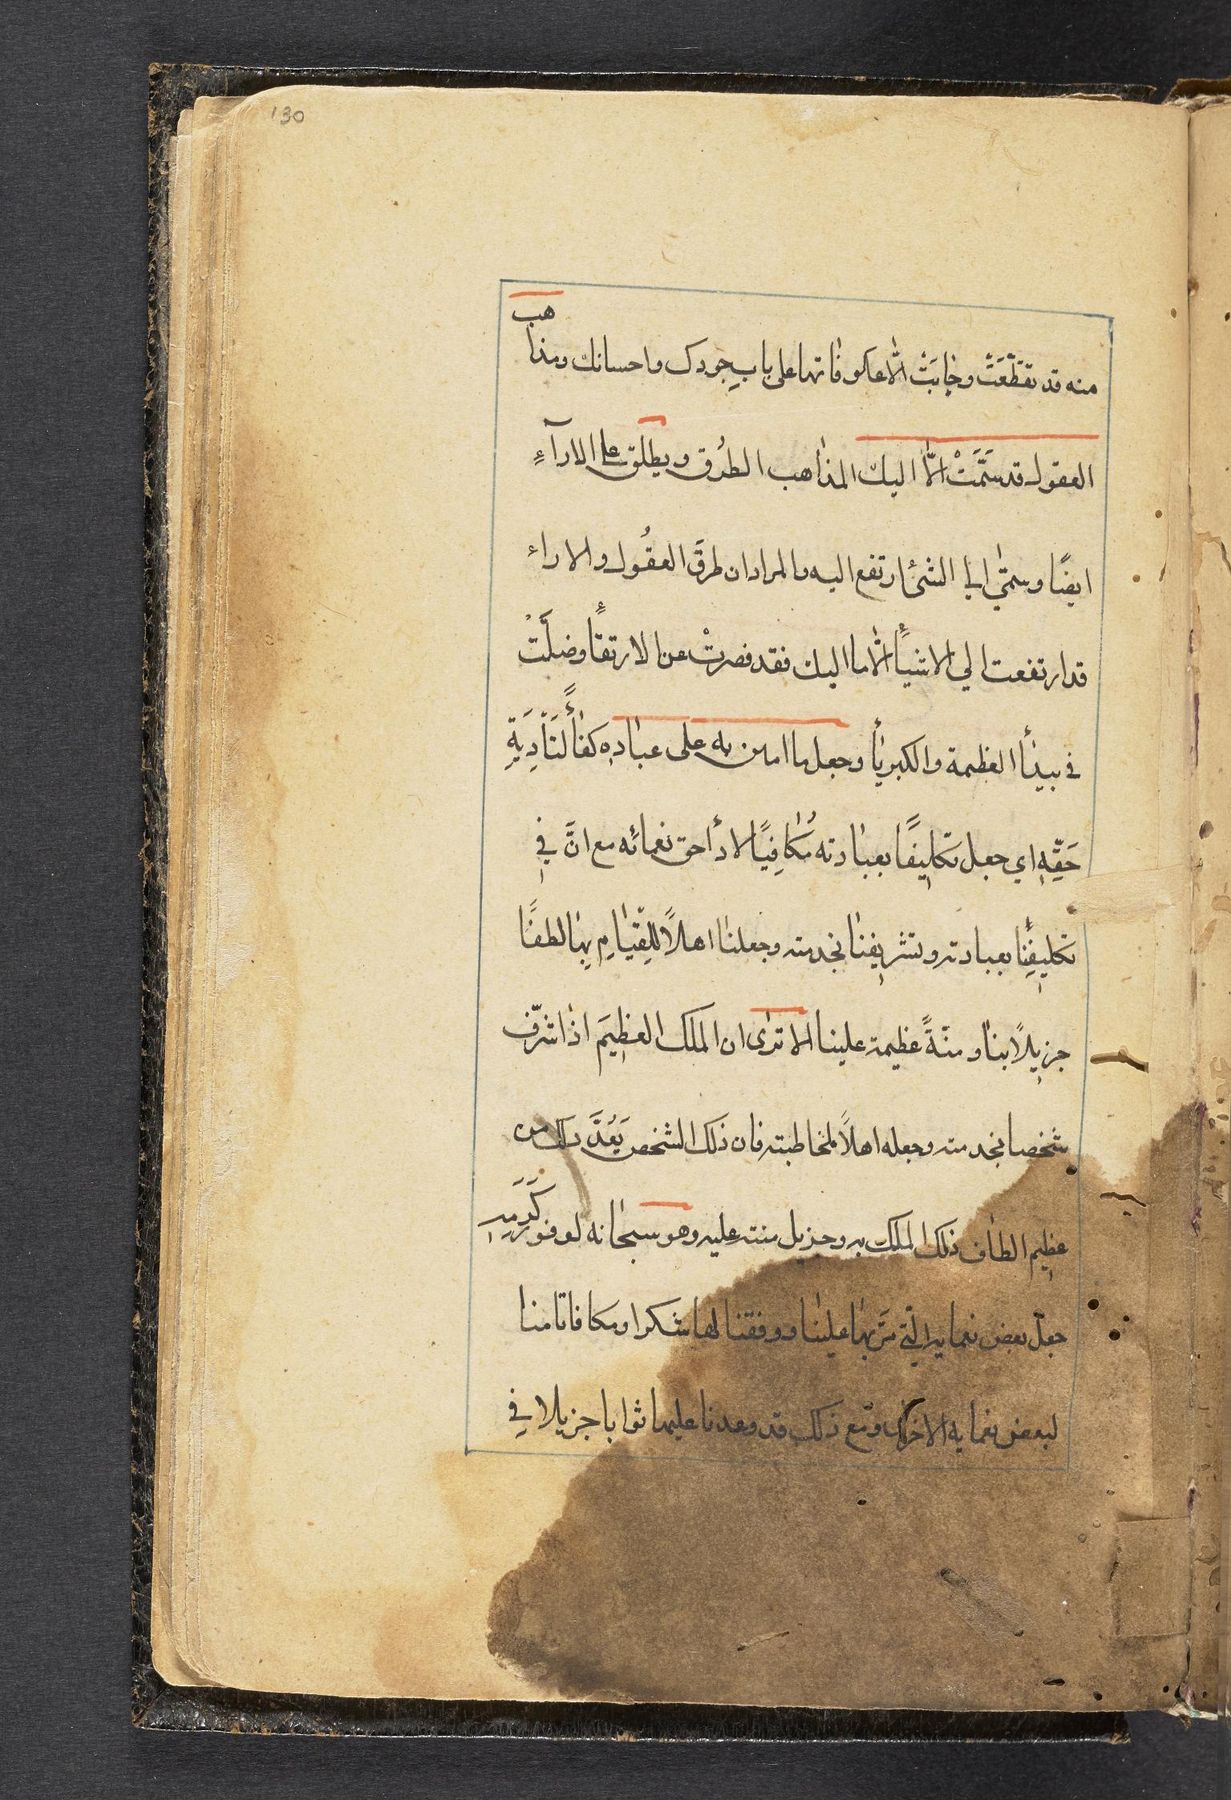 130
منه قد تقطّعَتْ وخابَتْ الّا عاكوفاتها على باب جودك واحسانك ومذاهب
العقول قد سَمَتْ الّا اليك المذاهب الطرُق ويطلق على الاراءِ
ايضًا وسمىٰ الى الشئ ارتفع اليه والمراد ان طرقَ العقُول والاراء
قد ارتفعت الي الاشيأ الّا ما اليك فقد قصرتْ عن الارتقأ وضلّتْ
في بيدأ العظمة والكبريأ وجعل ما امتن به على عباده كفأً لتأدِيَةِ
حَقِّهِ اي جعل تكليفًا بعبادته مُكافِيًا لادأ حق نعمائه مع انَّ في
تكليفِنا بعبادته وتشريفنا بخدمته وجعلنا اهلًا للقيامِ بها لطفًا
جزيلًا بنا ومنّةً عظيمة علينا الا ترى ان الملك العظيمَ اذا شرّف
شخصا بخدمته وجعله اهلًا لمخاطبته فان ذلك الشخص يَعُدَّ ذلك من
عظيم الطاف ذلك الملك به وجزيل منته عليه وهو سبحانه لوفور كَرَمِه
جعل بعض نعمايه الّتي مَنّ بها علينا ووفقنا لها شكرا ومكافاتا منا
لبعض نعمايه الاخرى ومع ذلك قد وعدنا عليها ثوابا جزيلا في